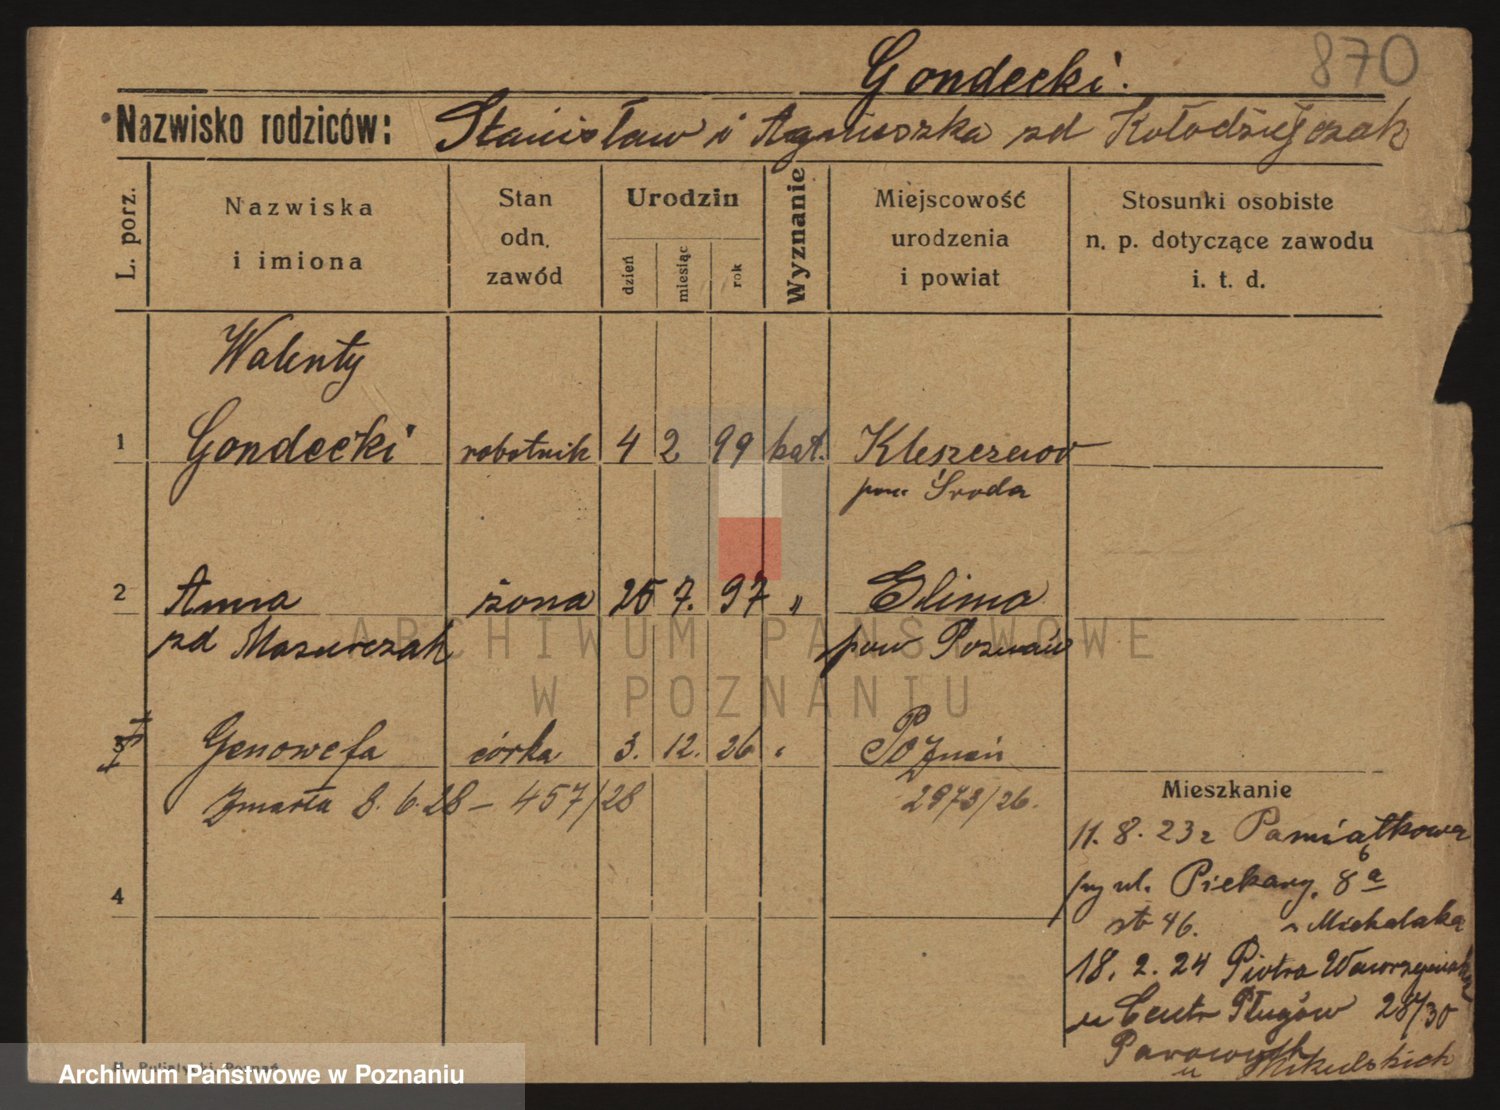 870
Gondecki.
Nazwisko rodziców: Stanisław i Agnieszka zd Kołodziejczak
L. porz.
Nazwiska
i imiona
Stan
odn.
zawód
Urodzin
dzień
miesiąc
rok
Wyznanie
Miejscowość
urodzenia
i powiat
Stosunki osobiste
n. p. dotyczące zawodu
i. t. d.
Walenty
1 Gondecki robotnik 4 2 99 kat. Kleszczewo
pow. Środa
2 Anna żona 25 7. 97 " Elimo
zd Mazurczak pow Poznań
3 Genowefa córka 3. 12. 26 " Poznań
Zmarła 8. 6. 28 – 457/28 2973/26.
4
Mieszkanie
11. 8. 23 z Pamiątkowa
ul. Piekary. 8 a
46. Michalaka
18. 2. 24 Piotra Wawrzyniaka
u Centr Pługów 28/30
Parowych
u Mikulskich
ARCHIWUM PAŃSTWOWE
W POZNANIU
Archiwum Państwowe w Poznaniu